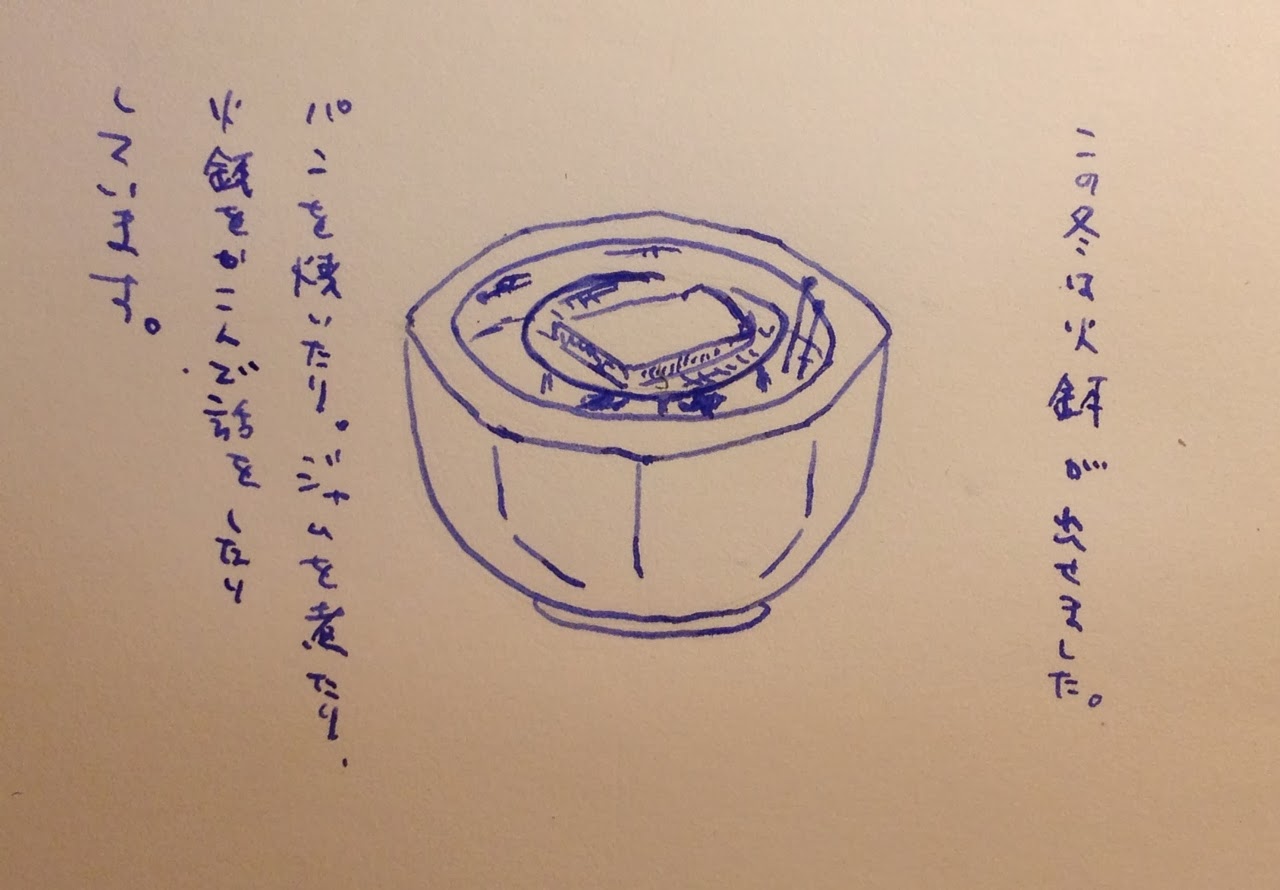 この冬は火鉢が出せました。
パンを焼いたり。ジャムを煮たり、
火鉢をかこんで話をしたり
しています。